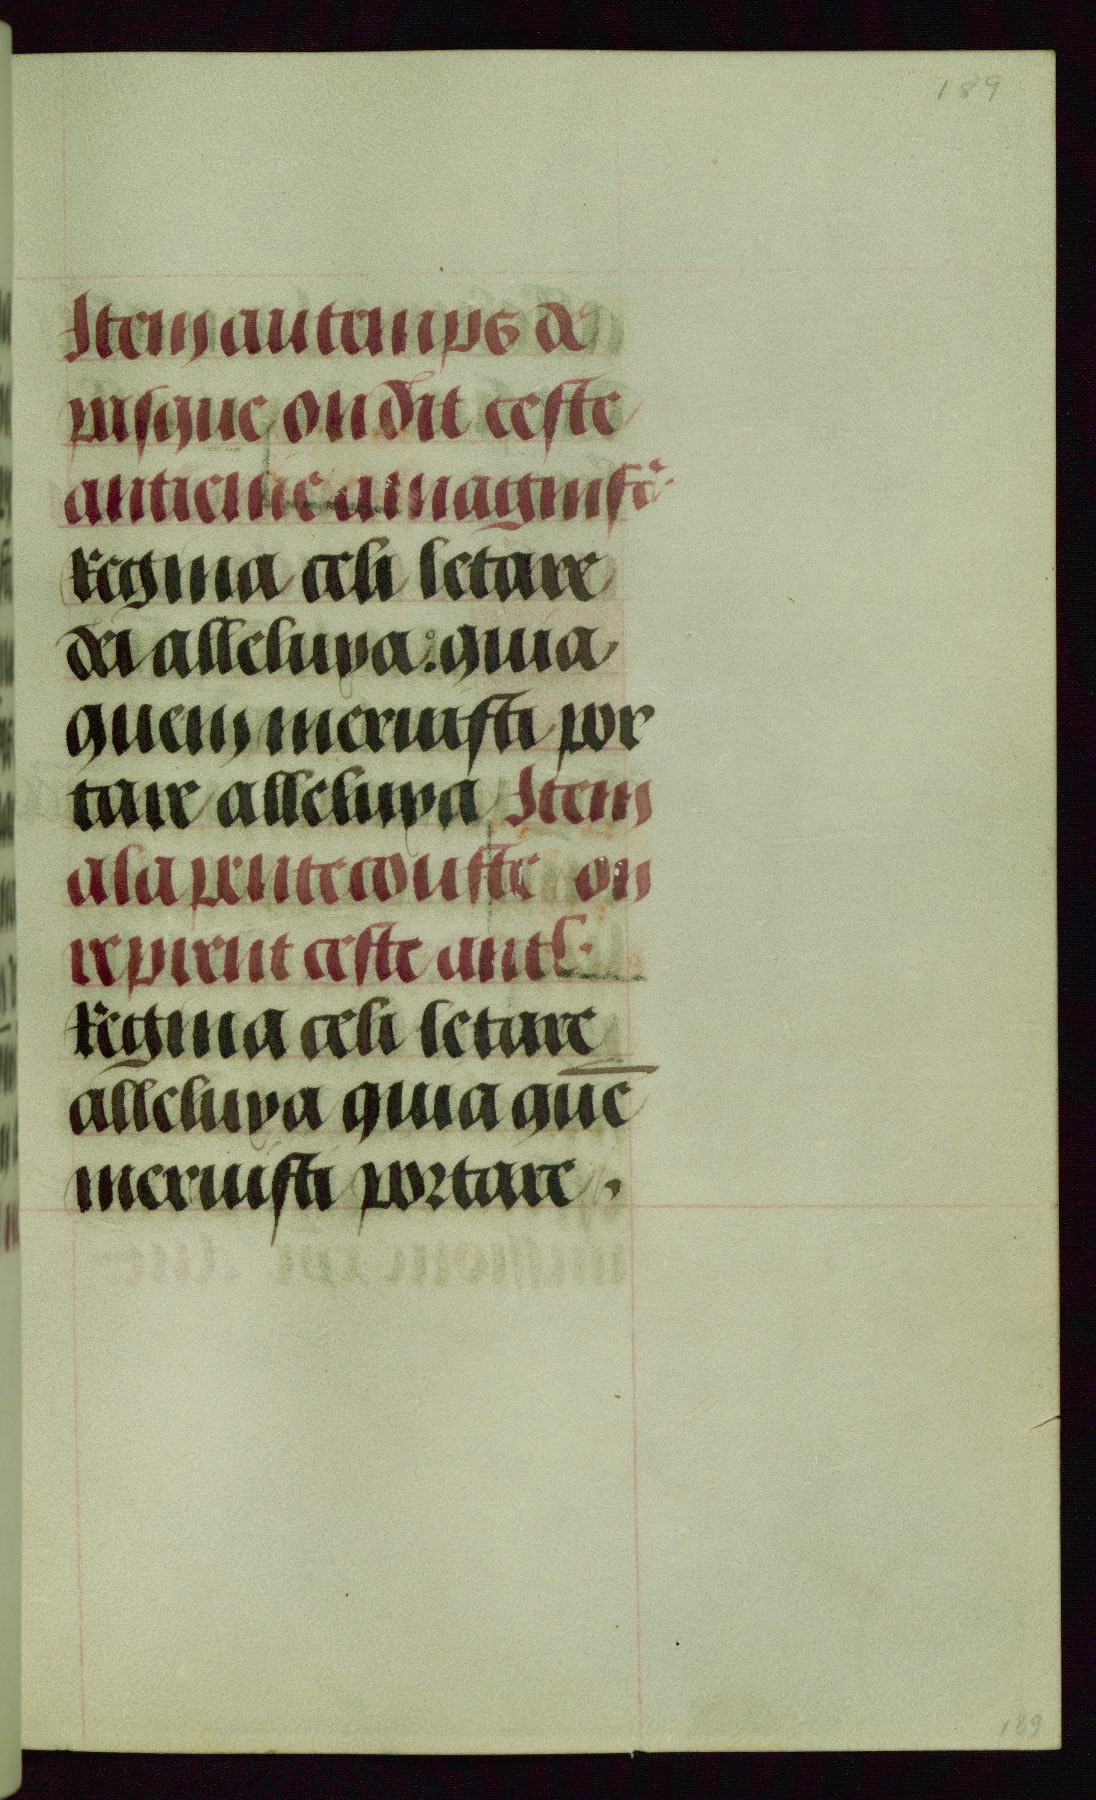 189
Item au temps de
pasque on dit ceste
antienne a magnifi̅
Regina celi letare
dei alleluya : quia
quem meruisti por
tare alleluya Item
a la pentecouste on
reprent ceste antl.
Regina celi letare
alleluya quia que̅
meruisti portare .
189